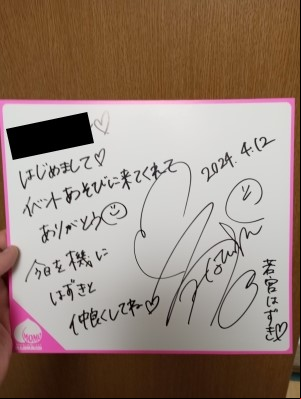 はじめまして♡
イベントあそびに来てくれて
ありがとう
今日を機に
はずきと
仲良くしてね♡
2024.4.12
若宮はずき♡